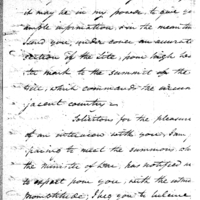 it may be in my power to give you
ample information, in the mean time
send you, under cover an accurate
section of the site, from high wa-
ter mark to the summit of the
hill, which commands the circum
jacent country
Solicitous for the pleasure
of an interview with you, I am
to meet the summons
the Minister of War, has notified us
to expect from you with the utmost
promptitude. I beg you to